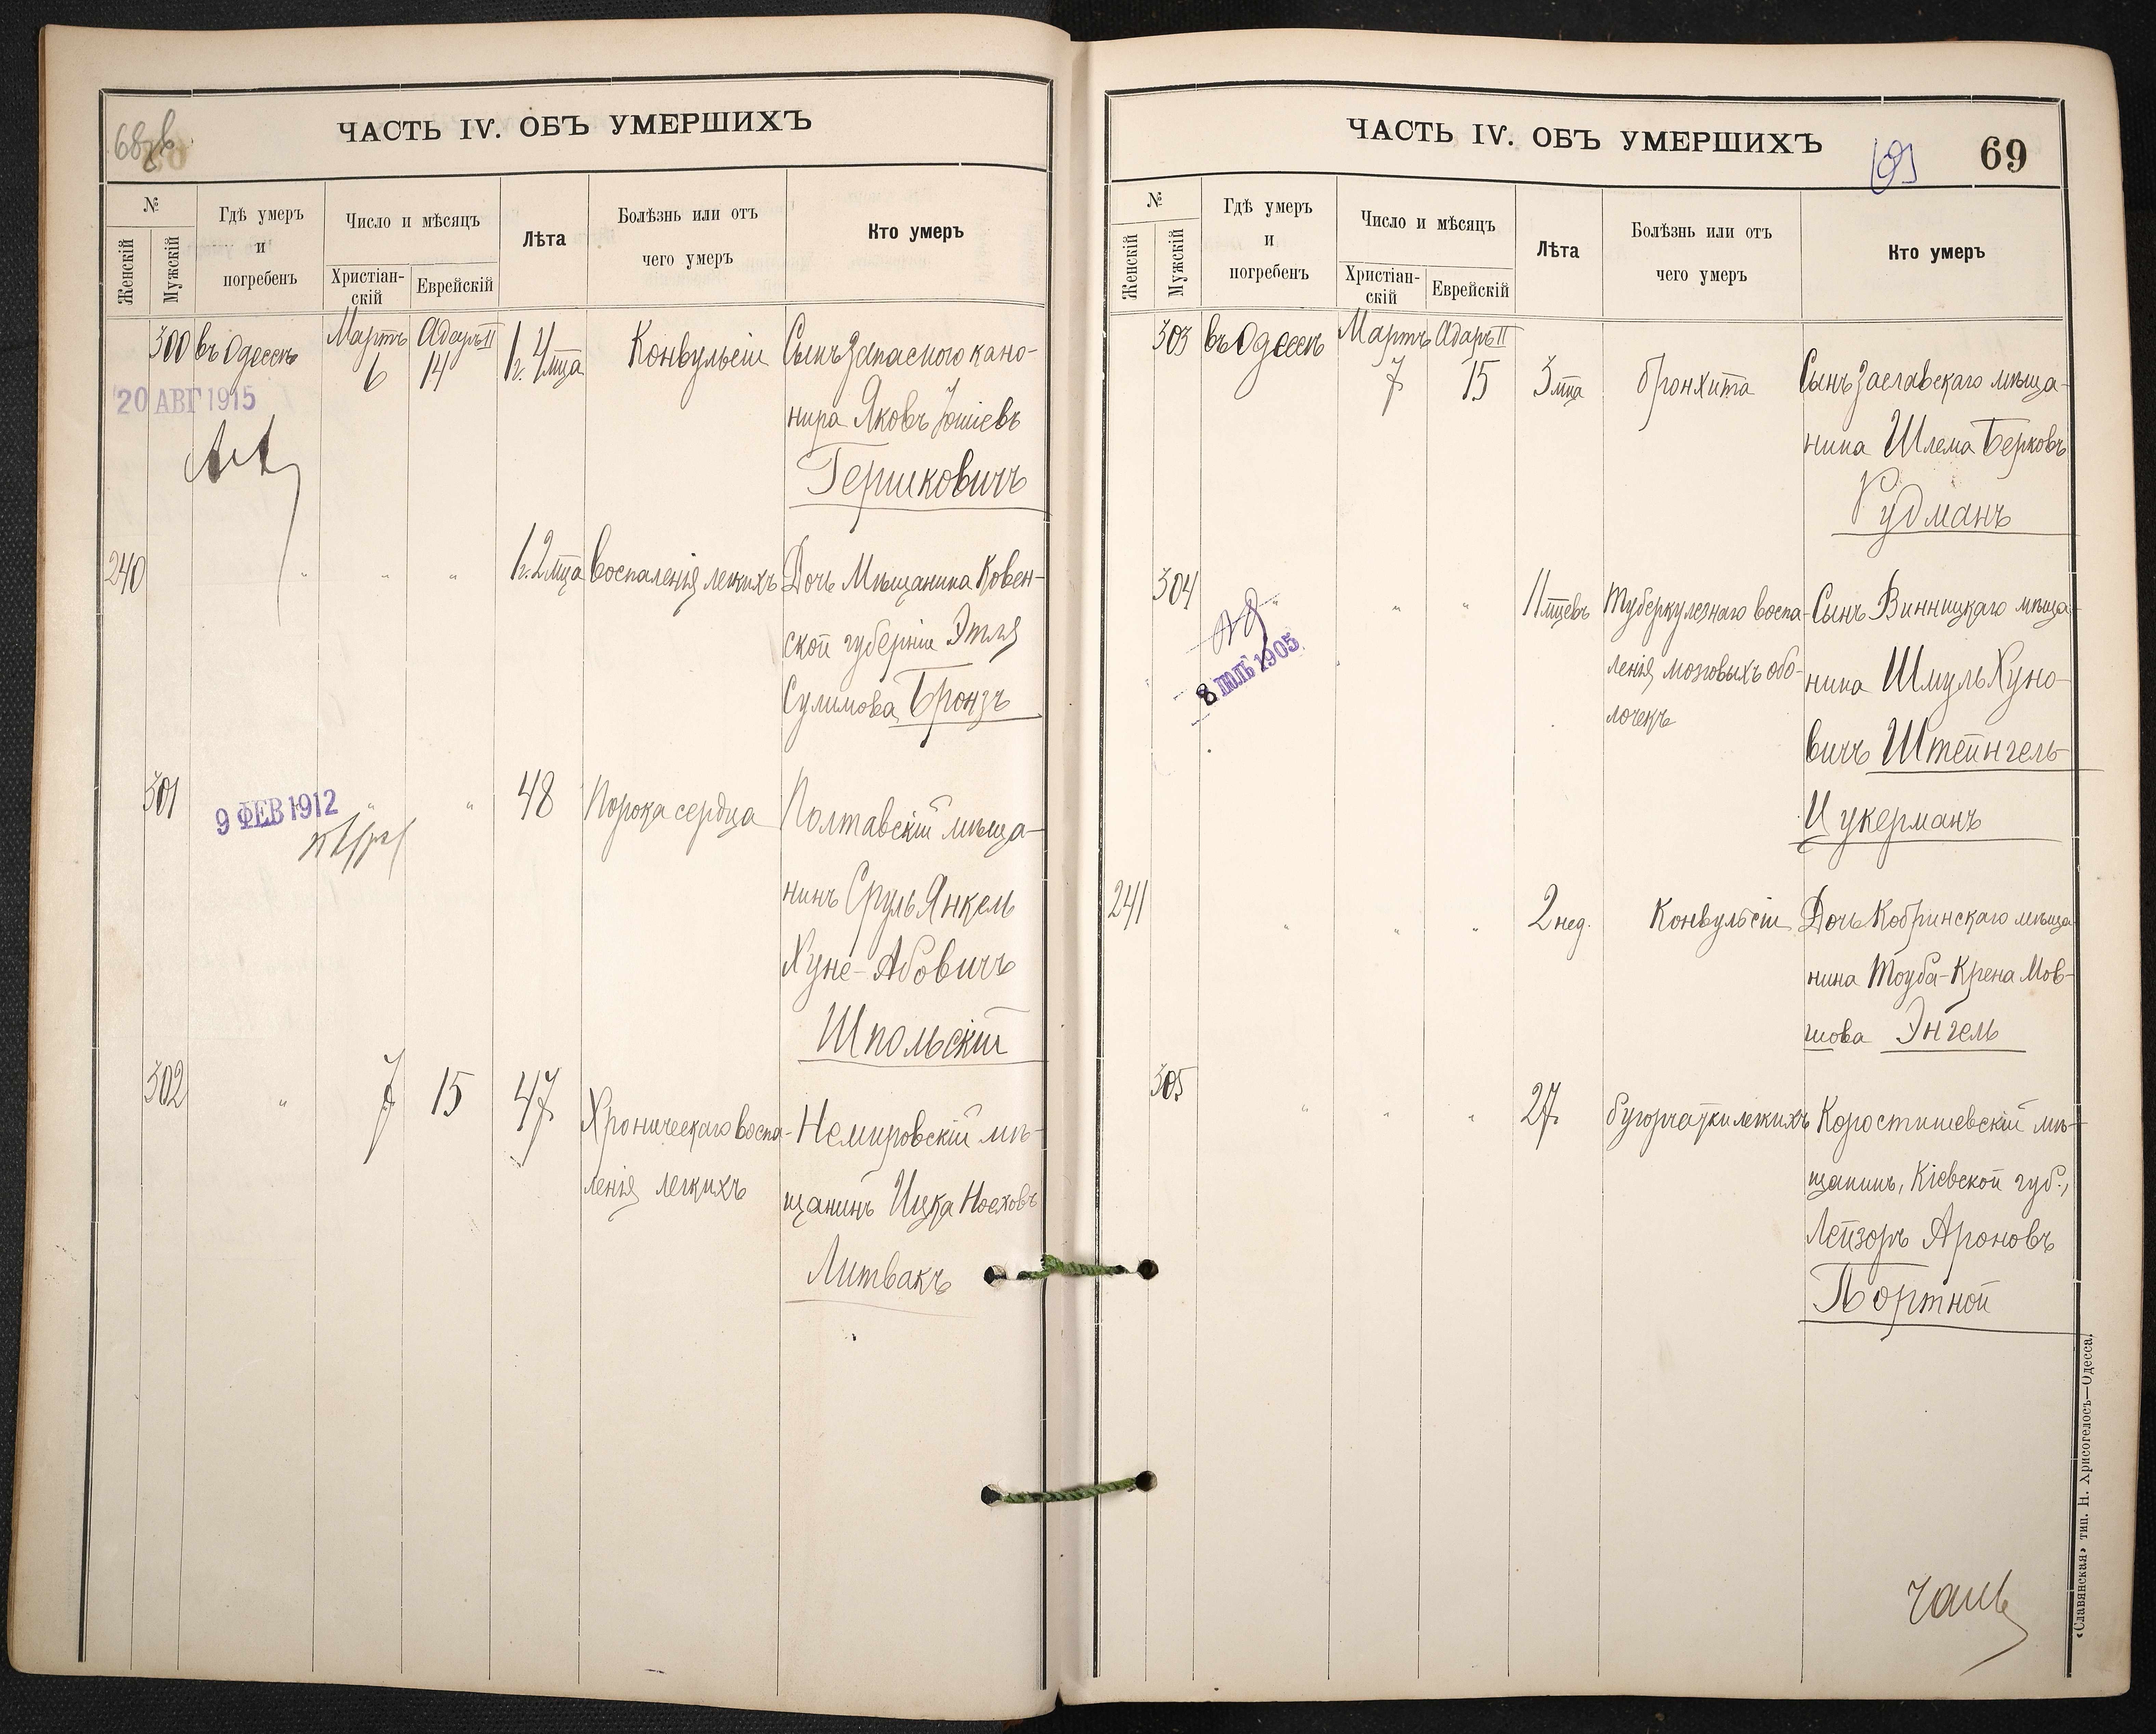 68об
ЧАСТЬ IV. ОБЪ УМЕРШИХЪ
№
Женскій
Мужскій
Гдѣ умеръ
и
погребенъ
Число и мѣсяцъ
Христіан-
скій
Еврейскій
Лѣта
Болѣзнь или отъ
чего умеръ
Кто умеръ
300 въ Одессѣ Мартъ Адаръ II 1 г. 4 мца Конвульсіи Сынъ запасного кано-
6 14
20 АВГ 1915
нира Яковъ Іошіевъ
Гершковичъ
240 " " " 1 г. 2 мца Воспаленія легкихъ Дочь Мѣщанина Ковен-
ской губерніи Этля
Сулимова Бронзъ
301 " " 48 Порока сердца Полтавскій мѣща-
9 ФЕВ 1912
нинъ Сруль Янкель
Хуне-Абовичъ
Шпольскій
302 " 7 15 47 Хроническаго воспа- Немировскій мѣ-
ленія легкихъ щанинъ Ицка Ноеховъ
Литвакъ
ЧАСТЬ IV. ОБЪ УМЕРШИХЪ
69
№
Женскій
Мужскій
Гдѣ умеръ
и
погребенъ
Число и мѣсяцъ
Христіан-
скій
Еврейскій
Лѣта
Болѣзнь или отъ
чего умеръ
Кто умеръ
303 въ Одессѣ Мартъ Адаръ II
7 15 3 мца Бронхита Сынъ Заславскаго мѣща-
нина Шлема Берковъ
Рудманъ
304 " " " 11 мцевъ Туберкулезнаго воспа- Сынъ Винницкаго мѣща-
8 ІЮЛЬ 1905
ленія мозговыхъ обо- нина Шмуль Хуно-
лочекъ
вичъ Штейнгель-
Цукерманъ
241 " " " 2 нед. Конвульсіи Дочь Кобринскаго мѣща-
нина Тоуба-Крена Мов-
шова Энгель
305 " " " 27 Бугорчатки легкихъ Коростишевскій мѣ-
щанинъ, Кіевской губ.,
Лейзоръ Ароновъ
Портной
«Славянская» тип. Н. Хрисогелосъ—Одесса.